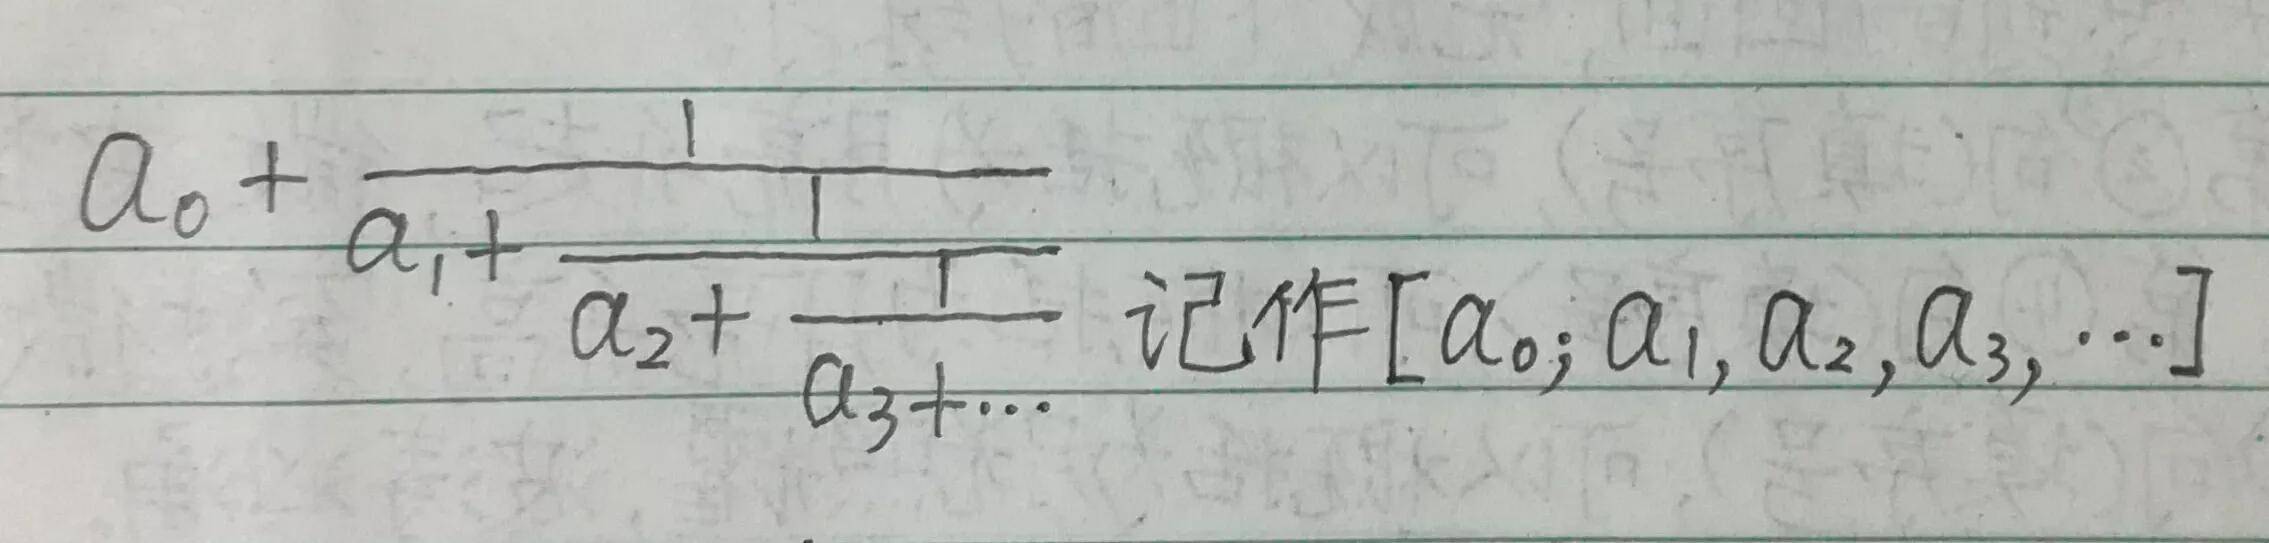 a₀ + 1/(a₁ + 1/(a₂ + 1/(a₃ + ⋯))) 记作[a₀; a₁, a₂, a₃, ⋯]